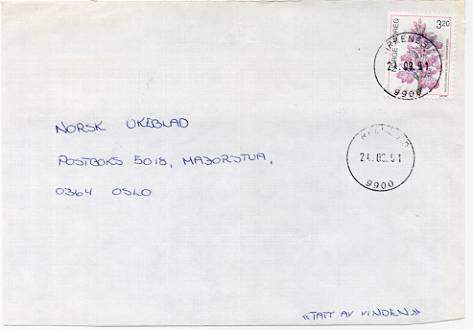 3.20
NORGE NOREG
KIRKENES
24.09.91
9900
KIRKENES
24.09.91
9900
NORSK UKEBLAD
POSTBOKS 5018, MAJORSTUA,
0364 OSLO
«TATT AV VINDEN»